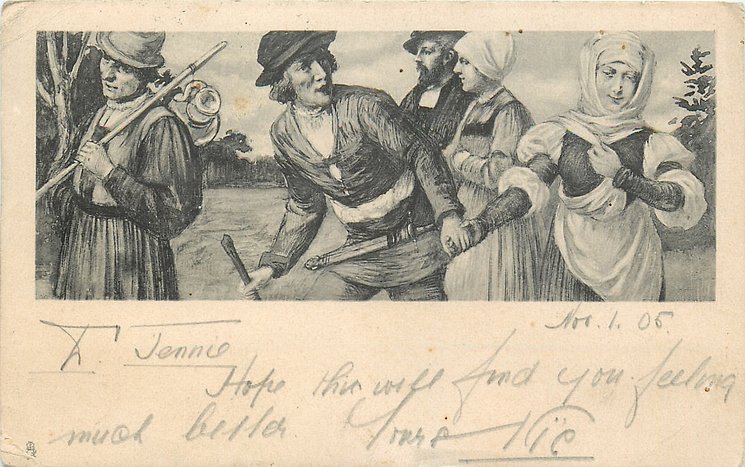 Nov. 1. 05.
D. Jennie
Hope this will find you feeling
much better Yours Vic